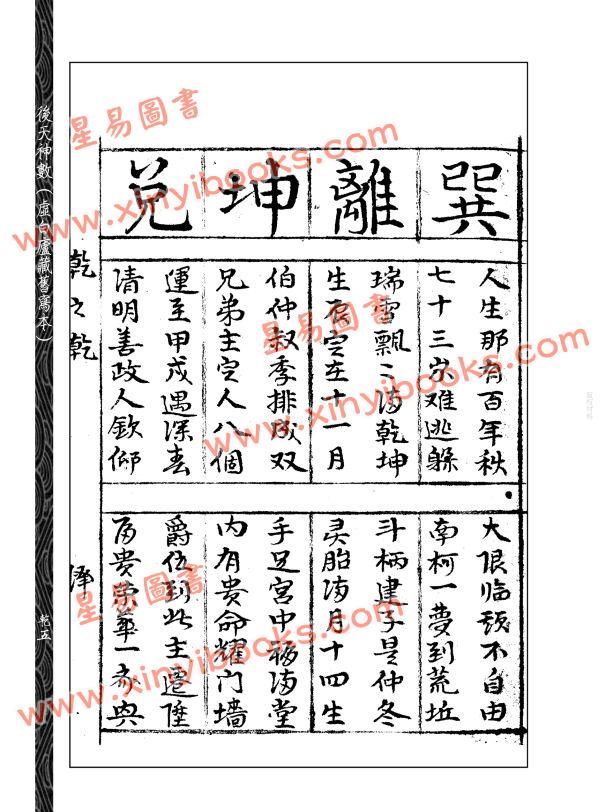 後天神數（虛白廬藏舊寫本）
乾五
巽
離
坤
兌
人生那有百年秋
七十三岁难逃躲
瑞雪飄〻满乾坤
生辰定在十一月
伯仲叔季排成双
兄弟主定人八個
運至甲戌遇深春
清明善政人欽仰
大限临頭不自由
南柯一夢到荒坵
斗柄建子是仲冬
灵胎满月十四生
手足宮中福满堂
内有贵命耀門墙
爵位到此主遷陞
富贵榮華一
乾之乾
星易圖書
www.xinyibooks.com
星易圖書
www.xinyibooks.com
星易圖書
www.xinyibooks.com